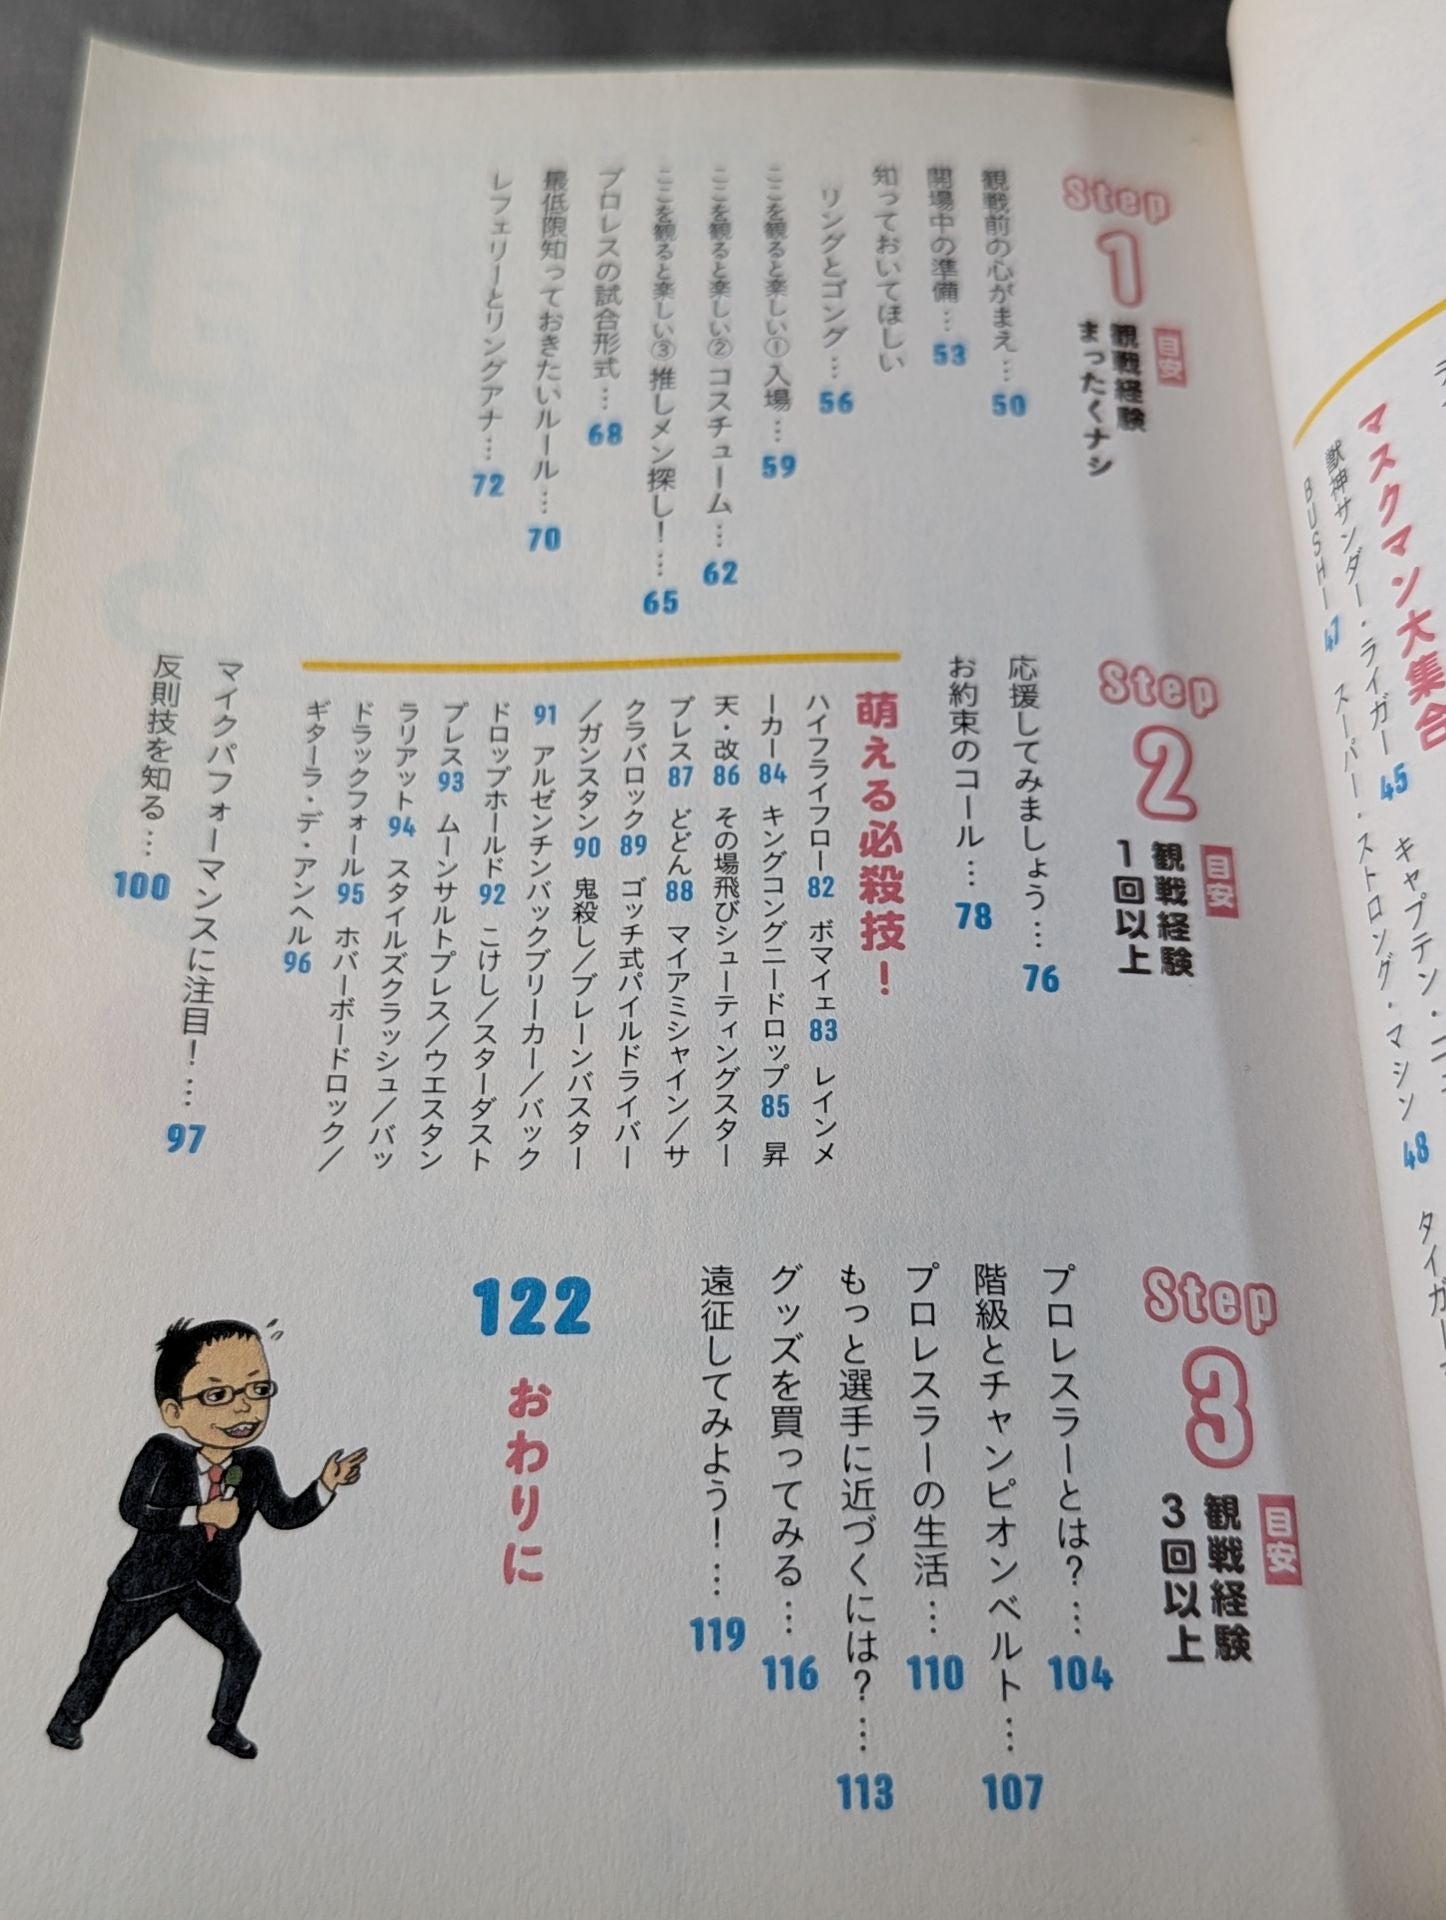 マスクマン大集合
獣神サンダー・ライガー 45 キャプテン・
BUSHI 47 スーパー・ストロング・マシン 48 タイガー
Step 1
目安
観戦経験
まったくナシ
観戦前の心がまえ… 50
開場中の準備… 53
知っておいてほしい
リングとゴング… 56
ここを観ると楽しい①入場… 59
ここを観ると楽しい②コスチューム… 62
ここを観ると楽しい③推しメン探し!… 65
プロレスの試合形式… 68
最低限知っておきたいルール… 70
レフェリーとリングアナ… 72
Step 2
目安
観戦経験
1回以上
応援してみましょう… 76
お約束のコール… 78
萌える必殺技!
ハイフライフロー 82 ボマイェ 83 レインメ
ーカー 84 キングコングニードロップ 85 昇
天・改 86 その場飛びシューティングスター
プレス 87 どどん 88 マイアミシャイン/サ
クラバロック 89 ゴッチ式パイルドライバー
/ガンスタン 90 鬼殺し/ブレーンバスター
91 アルゼンチンバックブリーカー/バック
ドロップホールド 92 こけし/スターダスト
プレス 93 ムーンサルトプレス/ウエスタン
ラリアット 94 スタイルズクラッシュ/バッ
ドラックフォール 95 ホバーボードロック/
ギターラ・デ・アンヘル 96
マイクパフォーマンスに注目!… 97
反則技を知る… 100
Step 3
目安
観戦経験
3回以上
プロレスラーとは?… 104
階級とチャンピオンベルト… 107
プロレスラーの生活… 110
もっと選手に近づくには?… 113
グッズを買ってみる… 116
遠征してみよう!… 119
122 おわりに